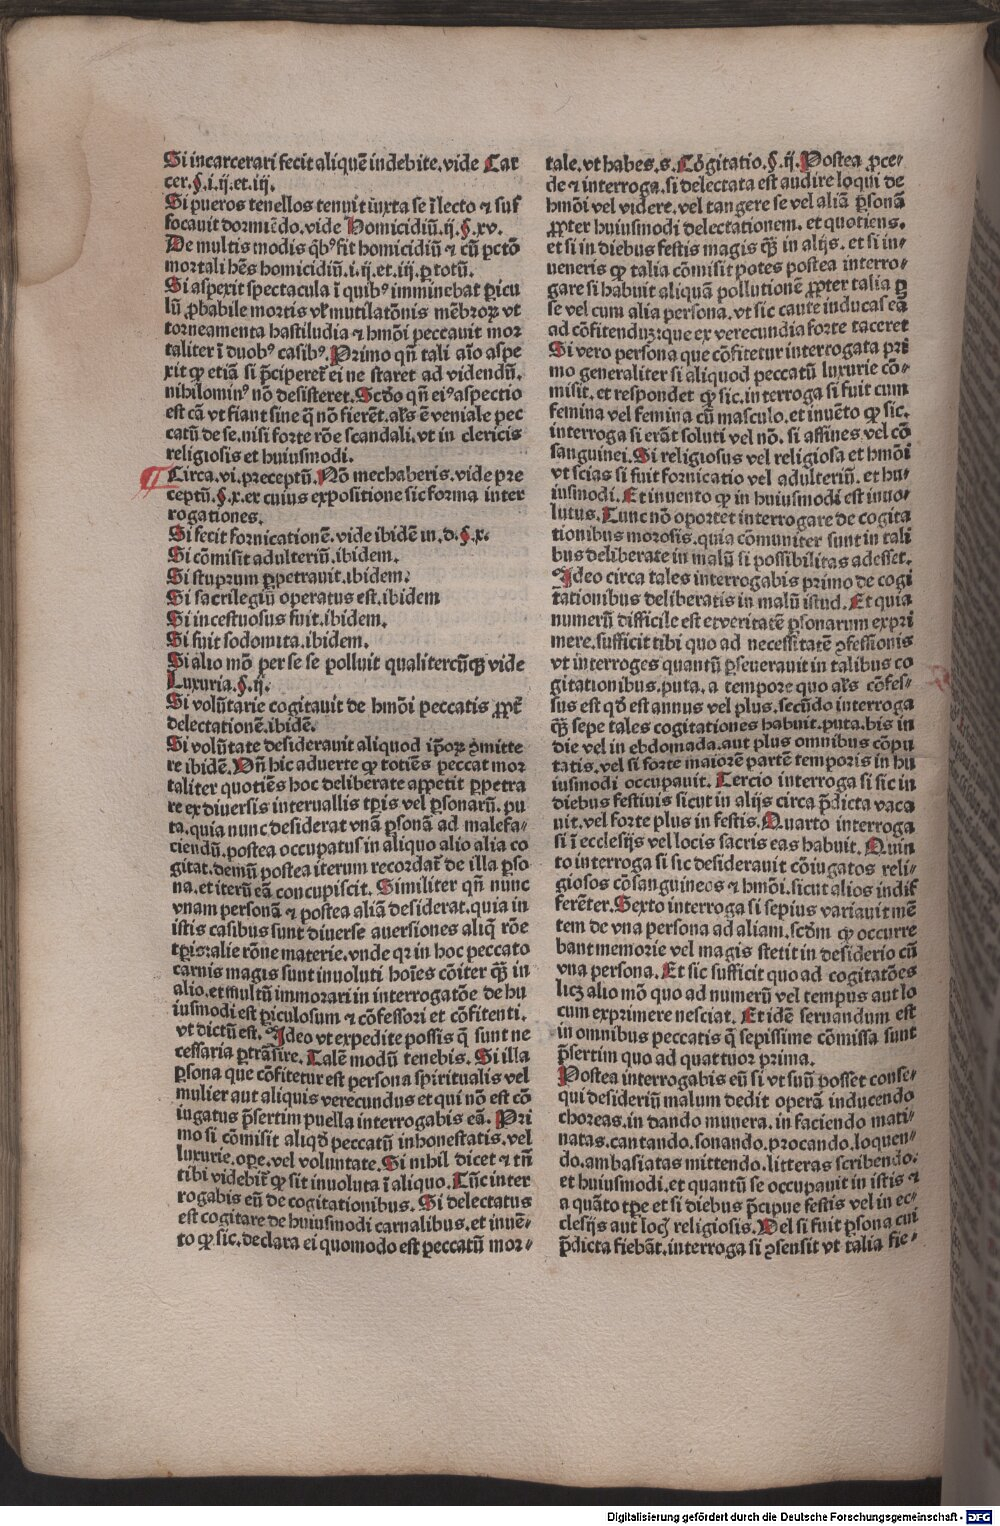 Si incarcerari fecit aliquē indebite. vide Car
cer. §. i. ij. et. iij.
Si pueros tenellos tenuit iuxta se ī lecto ⁊ suf
focauit dormiēdo. vide Homicidiū. ij. §. xv.
De multis modis qͥbꝰ fit homicidiū ⁊ cū pctō
mortali hēs homicidiū. i. ij. et. iij. ꝑ totū.
Si aspexit spectacula ī quibꝰ imminebat ꝑicu
lū ꝓbabile mortis vl̓ mutilatōnis mēbroꝝ vt
torneamenta hastiludia ⁊ hmōi peccauit mor
taliter ī duobꝰ casibꝰ. Primo qn̄ tali aīo aspe
xit ꝙ etiā si p̄ciperet᷑ ei ne staret ad videndū.
nihilominꝰ nō desisteret. Scd̓o qn̄ eiꝰ aspectio
est cā vt fiant sine q̄ nō fierēt. al̓s ē veniale pec
catū de se. nisi forte rōe scandali. vt in clericis
religiosis et huiusmodi.
¶ Circa. vi. preceptū. Nō mechaberis. vide pre
ceptū. §. x. ex cuius expositione sic forma inter
rogationes.
Si fecit fornicationē. vide ibidē in. d. §. x.
Si cōmisit adulteriū. ibidem.
Si stuprum ꝑpetrauit. ibidem.
Si sacrilegiū operatus est. ibidem
Si incestuosus fuit. ibidem.
Si fuit sodomita. ibidem.
Si alio mō per se se polluit qualitercūqꝫ vide
Luxuria. §. ij.
Si volūtarie cogitauit de hmōi peccatis ꝓpt̓
delectationē. ibidē.
Si volūtate desiderauit aliquod ip̄oꝝ ꝯmitte
re ibidē. Vn̄ hic aduerte ꝙ totiēs peccat mor
taliter quotiēs hoc deliberate appetit ꝑpetra
re ex diuersis interuallis tp̄is vel ꝑsonarū. pu
ta. quia nunc desiderat vnā ꝑsonā ad malefa⸗
ciendū. postea occupatus in aliquo alio alia co
gitat. demū postea iterum recordat᷑ de illa ꝑso
na. et iterū eā concupiscit. Similiter qn̄ nunc
vnam personā ⁊ postea aliā desiderat. quia in
istis casibus sunt diuerse auersiones aliq̄ rōe
tp̄is: alie rōne materie. vnde qr in hoc peccato
carnis magis sunt inuoluti hoīes cōiter qꝫ̄ in
alio. et multū immorari in interrogatōe de hu
iusmodi est ꝑiculosum ⁊ cōfessori et cōfitenti.
vt dictū est. Ideo vt expedite possis q̄ sunt ne
cessaria ꝑtrāsire. Talē modū tenebis. Si illa
ꝑsona que cōfitetur est persona spiritualis vel
mulier aut aliquis verecundus et qui nō est cō
iugatus p̄sertim puella interrogabis eā. Pri
mo si cōmisit aliqd̓ peccatū inhonestatis. vel
luxurie. oꝑe. vel voluntate. Si nihil dicet ⁊ tn̄
tibi videbit᷑ ꝙ sit inuoluta ī aliquo. Tūc inter
rogabis eū de cogitationibus. Si delectatus
est cogitare de huiusmodi carnalibus. et inuē⸗
to ꝙ sic. declara ei quomodo est peccatū mor⸗
tale. vt habes. s. Cōgitatio. §. ij. Postea ꝓce⸗
de ⁊ interroga. si delectata est audire loqui de
hmōi vel videre. vel tangere se vel aliā ꝑsonā
ꝓpter huiusmodi delectationem. et quotiens.
et si in diebus festis magis qꝫ̄ in alijs. et si in⸗
ueneris ꝙ talia cōmisit potes postea interro⸗
gare si habuit aliquā pollutionē ꝓpter talia ꝑ
se vel cum alia persona. vt sic caute inducas eā
ad cōfitenduꝫ: que ex verecundia forte taceret
Si vero persona que cōfitetur interrogata pri
mo generaliter si aliquod peccatū luxurie cō⸗
misit. et respondet ꝙ sic. interroga si fuit cum
femina vel femina cū masculo. et inuēto ꝙ sic.
interroga si erāt soluti vel nō. si affines vel cō
sanguinei. Si religiosus vel religiosa et hmōi
vt scias si fuit fornicatio vel adulteriū. et hu⸗
iusmodi. Et inuento ꝙ in huiusmodi est inuo⸗
lutus. Tunc nō oportet interrogare de cogita
tionibus morosis. quia cōmuniter sunt in tali
bus deliberate in malū si possibilitas adesset.
Ideo circa tales interrogabis primo de cogi
tationibus deliberatis in malū istud. Et quia
numerū difficile est et veritatē ꝑsonarum expri
mere. sufficit tibi quo ad necessitatē ꝯfessionis
vt interroges quantū ꝑseuerauit in talibus co
gitationibus. puta. a tempore quo al̓s cōfes⸗
sus est qd̓ est annus vel plus. secūdo interroga
qꝫ̄ sepe tales cogitationes habuit. puta. bis in
die vel in ebdomada. aut plus omnibus cōpu
tatis. vel si forte maiorē partē temporis in hu
iusmodi occupauit. Tercio interroga si sic in
diebus festiuis sicut in alijs circa p̄dicta vaca
uit. vel forte plus in festis. Quarto interroga
si ī ecclesijs vel locis sacris eas habuit. Quin
to interroga si sic desiderauit cōiugatos reli⸗
giosos cōsanguineos ⁊ hmōi. sicut alios indif
ferēter. Sexto interroga si sepius variauit mē
tem de vna persona ad aliam. scd̓m ꝙ occurre
bant memorie vel magis stetit in desiderio cū
vna persona. Et sic sufficit quo ad cogitatōes
licꝫ alio mō quo ad numerū vel tempus aut lo
cum exprimere nesciat. Et idē seruandum est
in omnibus peccatis q̄ sepissime cōmissa sunt
p̄sertim quo ad quattuor prima.
Postea interrogabis eū si vt suū posset conse⸗
qui desideriū malum dedit operā inducendo
choreas. in dando munera. in faciendo mati⸗
natas. cantando. sonando. procando. loquen⸗
do. ambasiatas mittendo. litteras scribendo.
et huiusmodi. et quantū se occupauit in istis ⁊
a quāto tp̄e et si diebus p̄cipue festis vel in ec⸗
clesijs aut locꝭ religiosis. Vel si fuit ꝑsona cui
p̄dicta fiebāt. interroga si ꝯsensit vt talia fie⸗
Digitalisierung gefördert durch die Deutsche Forschungsgemeinschaft - DFG